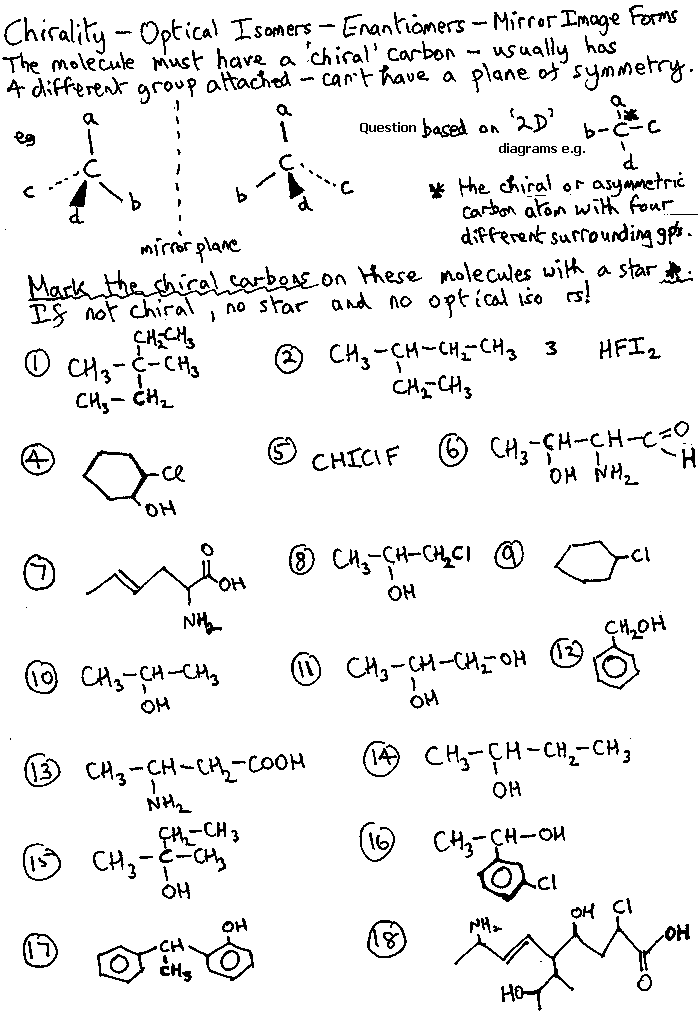 Chirality – Optical Isomers – Enantiomers – Mirror Image Forms
The molecule must have a 'chiral' carbon – usually has
4 different group attached – can't have a plane of symmetry.
eg
a
C
c
d
b
mirror plane
a
C
b
d
c
Question based on '2D'
diagrams e.g.
a
b–C–c
*
d
* the chiral or asymmetric
carbon atom with four
different surrounding gps.
Mark the chiral carbons on these molecules with a star *.
If not chiral, no star and no optical iso rs!
1
CH2CH3
CH3–C–CH3
CH3–CH2
2
CH3–CH–CH2–CH3
CH2–CH3
3 HFI2
4
Cl
OH
5 CHIClF
6
CH3–CH–CH–C=O
H
OH NH2
7
O
OH
NH2
8
CH3–CH–CH2Cl
OH
9
Cl
10
CH3–CH–CH3
OH
11
CH3–CH–CH2–OH
OH
12
CH2OH
13
CH3–CH–CH2–COOH
NH2
14
CH3–CH–CH2–CH3
OH
15
CH2–CH3
CH3–C–CH3
OH
16
CH3–CH–OH
Cl
17
CH
CH3
OH
18
NH2
OH
Cl
OH
O
HO